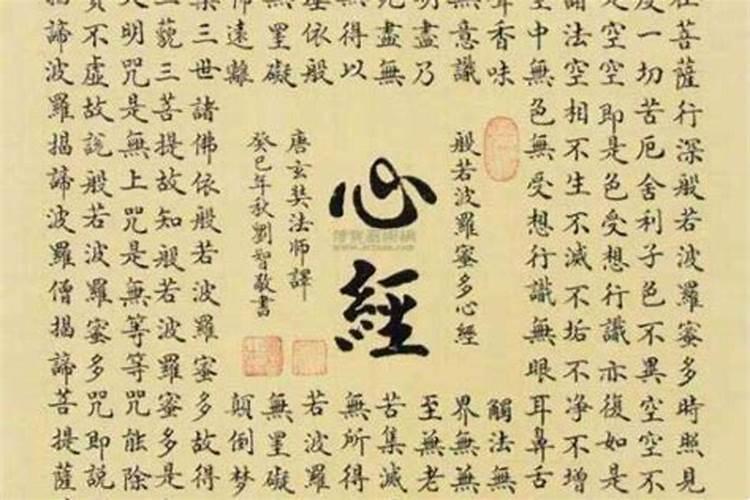 菩薩行深般若波羅蜜多時照見
度一切苦厄舍利子色不異空空不
是空空即是色受想行識亦復如是
諸法空相不生不滅不垢不淨不增
空中無色無受想行識無眼耳鼻舌
聲香味
觸法無
無意識
界無無
明盡乃
至無老
死盡無
苦集滅
無得以
無所得
依般
若波羅
無罣礙
無罣礙
怖遠離
顛倒夢
般若波羅蜜多心經
心經
唐玄奘法師譯
癸巳年秋劉智敬書
槃三世諸佛依般若波羅蜜多故得
三藐三菩提故知般若波羅蜜多是
大明咒是無上咒是無等等咒能除
實不虛故說般若波羅蜜多咒即說
揭諦波羅揭諦波羅僧揭諦菩提薩